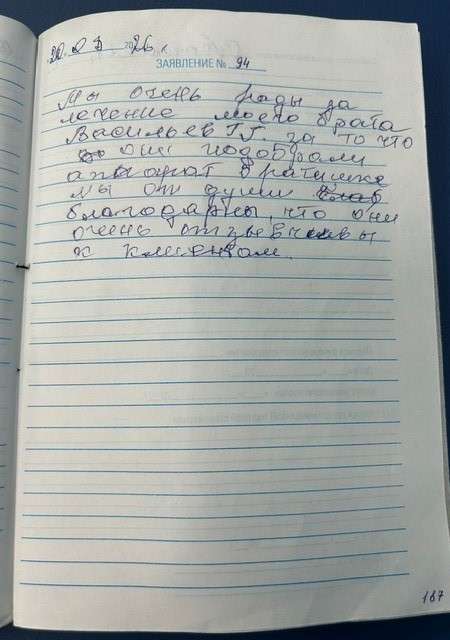 20.03 2026 г.
ЗАЯВЛЕНИЕ № 94
Мы очень рады за
лечение моего брата
Васильев Г.Г. за то что
они подобрали
аппарат братишке
мы от души
благодарны, что они
очень отзывчивы
к клиентам.
187